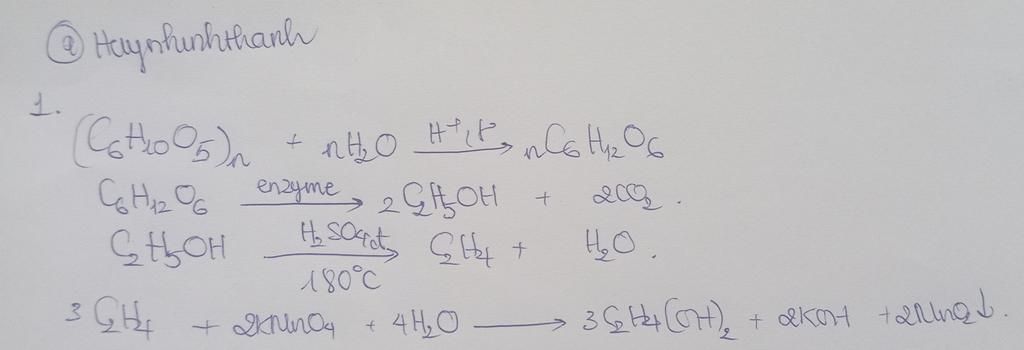 @ Huynhinhthanh
1.
(C₆H₁₀O₅)ₙ + nH₂O \xrightarrow{H⁺, t°} nC₆H₁₂O₆
C₆H₁₂O₆ \xrightarrow{enzyme} 2C₂H₅OH + 2CO₂.
C₂H₅OH \xrightarrow[180°C]{H₂SO₄đ, t°} C₂H₄ + H₂O.
3C₂H₄ + 2KMnO₄ + 4H₂O ⟶ 3C₂H₄(OH)₂ + 2KOH + 2MnO₂↓.